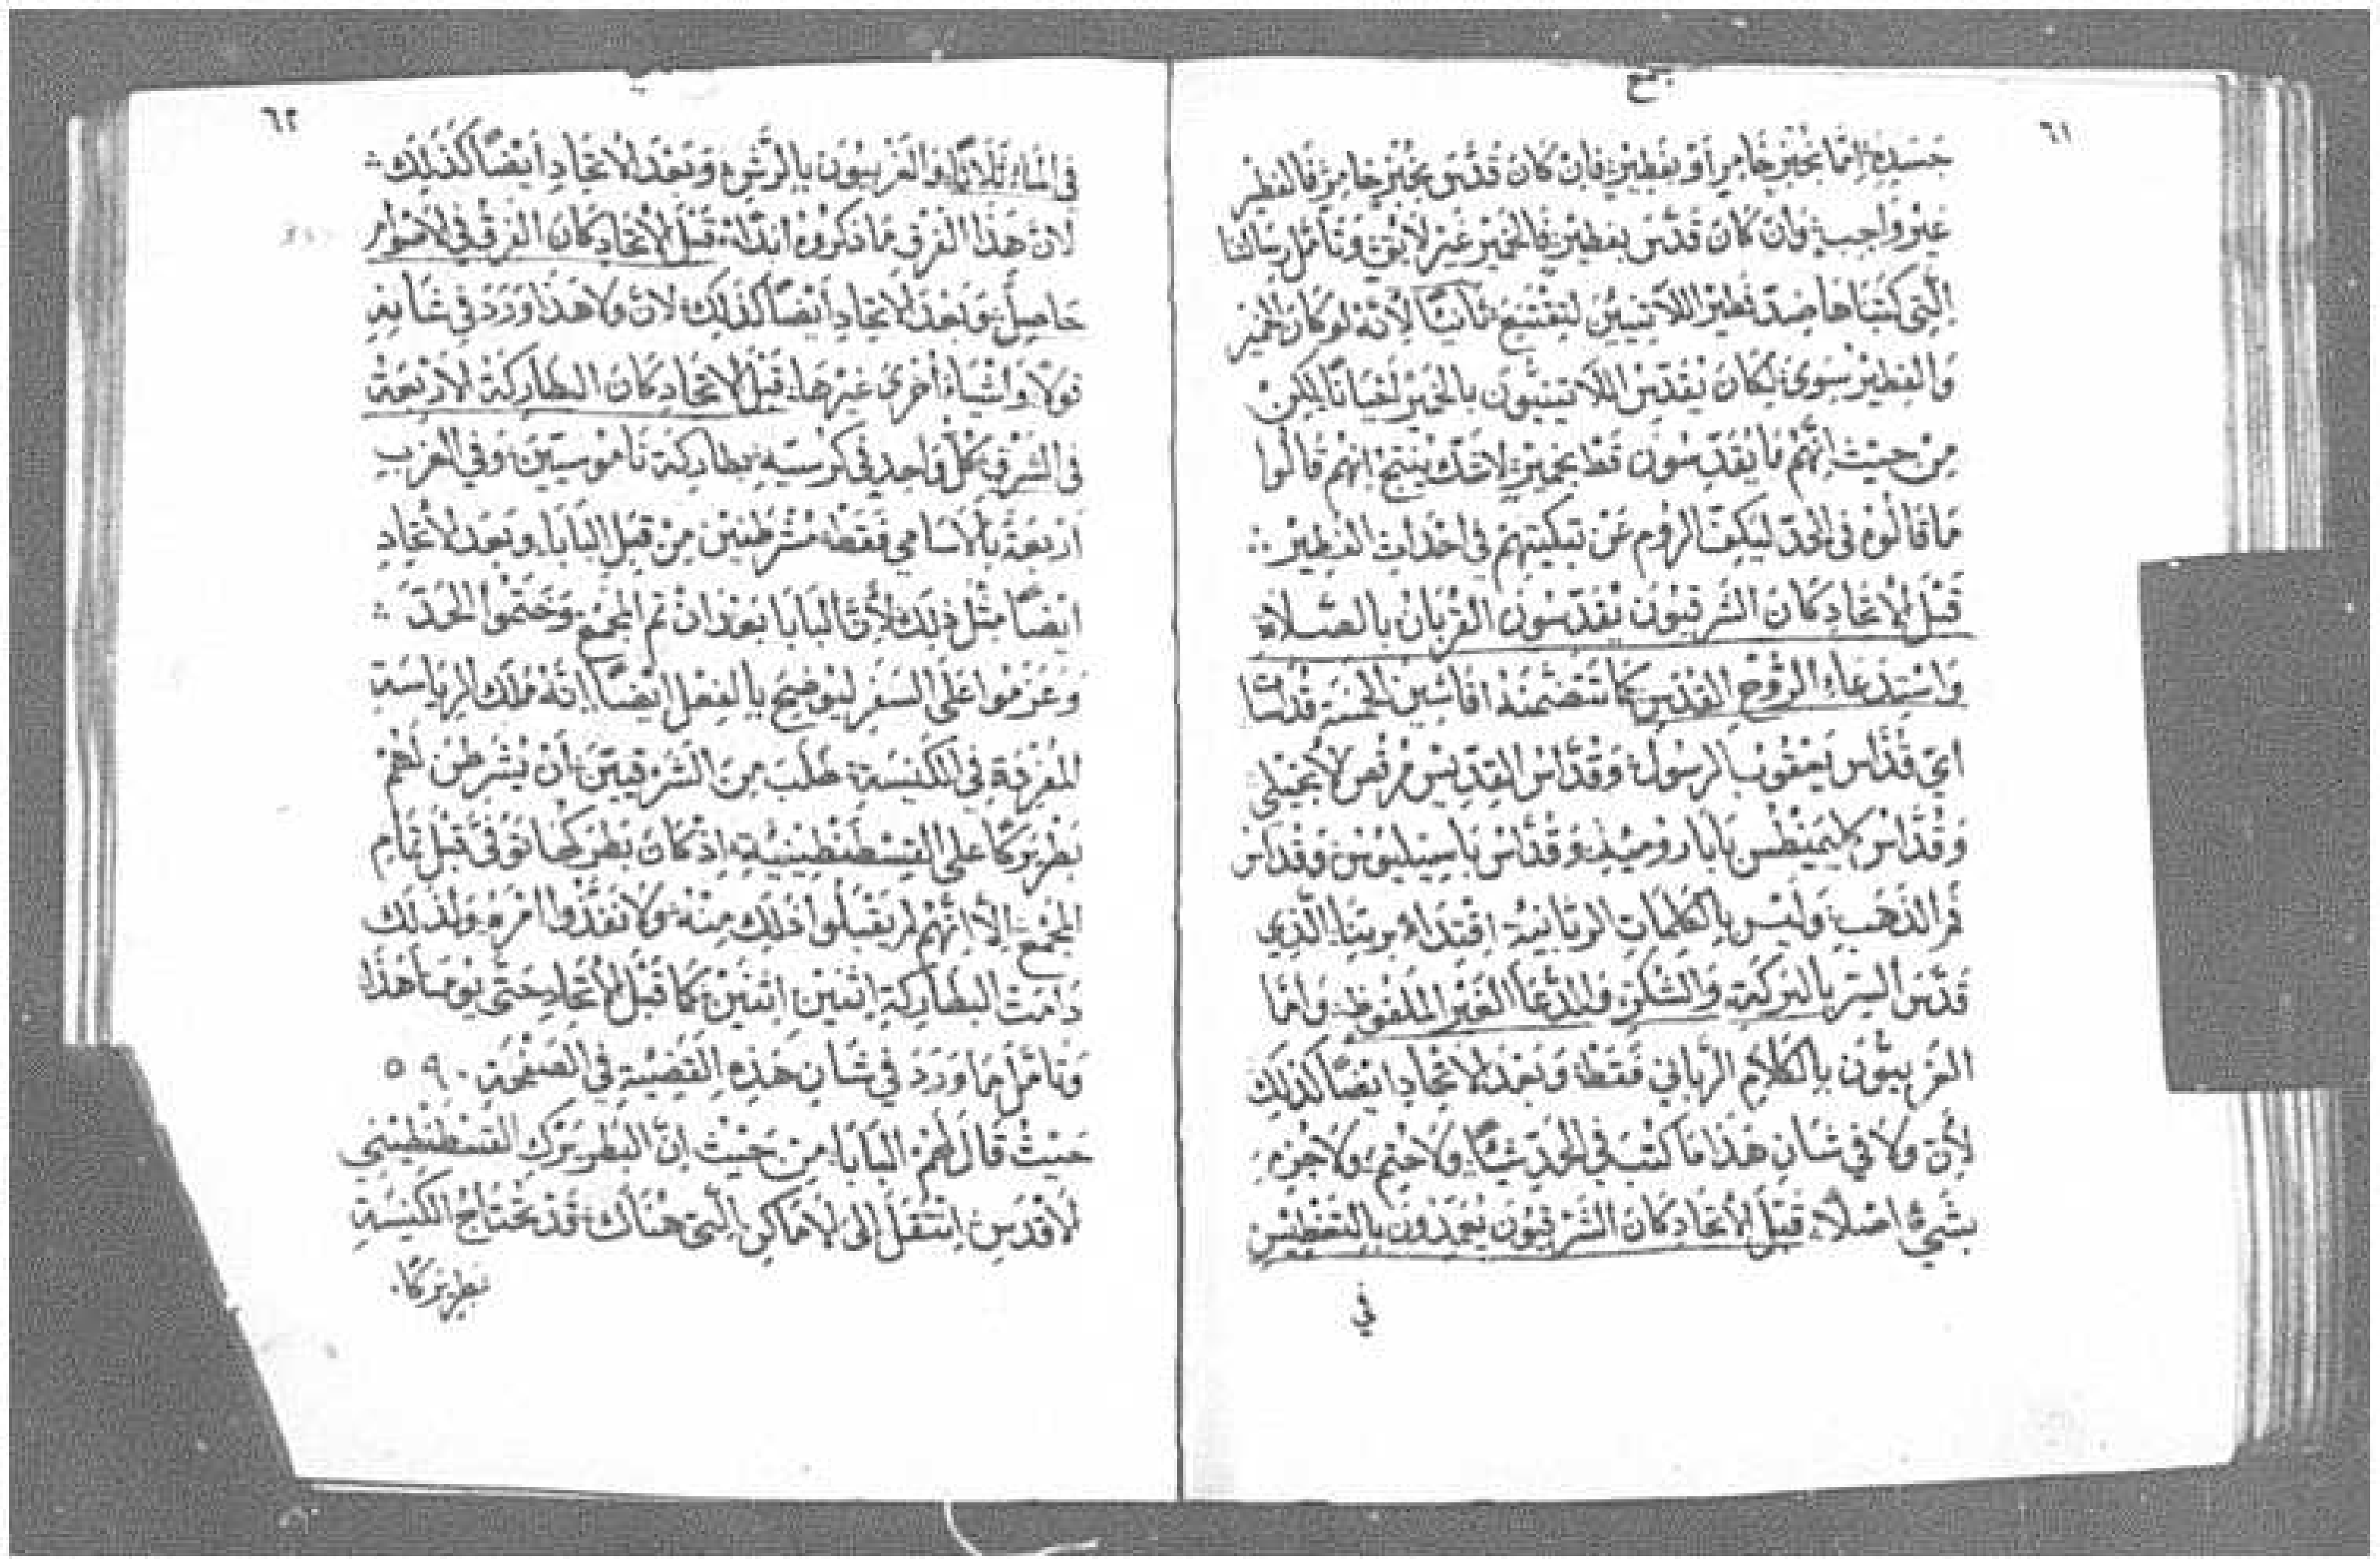 ٦١
جَسَدِهِ إِمَّا بخُبْزٍ خَامِرٍ أَوْ بِفَطِيْرٍ فَإِنْ كَانَ قَدَّسَ بِخُبْزٍ خَامِرٍ فَالفَطِيْر
غَيْر وَاجِبٍ وَانْ كَانَ قَدَّسَ بِفَطِيْرٍ فَالخَمِيْر غَيْر لَايِقٍ وَتَأمَّل رِسَالَتنَا
الَّتِي كَتَبْنَاهَا ضِدّ فَطِيْر اللَاتِيْنِيِّيْنَ لِتَقْتَنِعَ ثَانِيًا لِأنّهُ لَو كَانَ الخَمِيْر
وَالفَطِيْر سَوِى لَكَانَ يُقَدِّس اللَاتِينِيُّون بِالخَمِيْر احْيَانًا لَكِنْ
مِنْ حَيْث إِنَّهُمْ مَا يُقَدِّسُونَ قَطْ بِخَمِيْرٍ لَا شَكّ يَنتِج انَّهُمْ قَالُوا
مَا قَالُوهُ فِي الحَدّ لِيَكِفّ الرُوم عَنْ تَبْكِيتِهِمْ فِي احْدَاث الفَطِيْر
قَبْلَ الاتِّحَادِ كَانَ الشَرْقِيُّونَ يُقَدِّسُونَ القُرْبَانَ بِالصَلَاةِ
وَاسْتِدْعَاءِ الرُوْحِ القُدُسِ كَمَا تَتَضَمَّنهُ افَاشِين الخَمسَة قُدَّاسَات
اي قُدَّاس يَعْقُوب الرسُول وَقُدَّاس القِدِّيْس مَرْقُص الانْجِيْلِي
وَقُدَّاس اكليمَنطُس بَابَا رُومِيَةِ وَقُدَّاس بَاسِيلِيُوس وَقُدَّاس
فَم الذَهَبِ وَلَيْسَ بِالكَلِمَاتِ الرَبَّانِيَّة اقْتِدَاءً بِرَبِّنَا الَّذِي
قَدَّسَ السِرّ بِالبَرَكَةِ وَالشُكْرِ وَالدُّعَا الغَيْر المَلْفُوظِ وَامَّا
الغَرْبِيُّونَ بِالكَلَامِ الرَبَّانِي فَقَطْ وَبَعْدَ الاتِّحَادِ ايْضًا كَذلِكَ
لأَنّ وَلَا فِي شَانِ هَذَا مَا كُتِبَ فِي الحَدّ شَيْئًا وَلَا خُتِمَ وَلَا جُزِمَ
بِشَيْءٍ اصْلًا قَبْلَ الاتِّحَادِ كَانَ الشَرْقِيُّونَ يُعَمِّدُونَ بِالتَغْطِيْسِ
فِي
٦٢
فِي المَاءِ ثَلَاثًا وَالغَرْبِيُّونَ بِالرَّشِّ وَبَعْدَ الاتِّحَادِ أَيْضًا كَذَلِكَ
لأَنّ هَذَا الفَرْق مَا ذكَرُوهُ ابَدًا قَبْلَ الاتِّحَادِ كَانَ الفَرْق فِي الأَصْوَامِ
حَاصِلٌ وَبَعْدَ الاتِّحَادِ أَيْضًا كَذَلِكَ لأَنّ وَلَا هَذَا وَرَدَ فِي شَانِهِ
قَوْلًا وَاشْيَاءً أُخْرَى غَيْرهَا قَبْلَ الاتِّحَادِ كَانَ البَطَارِكَة الأَرْبَعَة
فِي الشَرْقِ كُلّ وَاحِدٍ فِي كُرْسِيِّهِ بَطَارِكَة نَامُوسِيِّين وَفِي الغَرْبِ
أرْبَعَة بِالأَسَامِي فَقَطْ مُشَرْطَنِيْن مِنْ قِبَلِ البَابَا وَبَعْدَ الاتِّحَادِ
ايْضًا مِثْل ذَلِكَ لأَنّ البَابَا بَعْدَ انْ تَمّ المَجْمَع وَخَتَمُوا الحَدّ
وَعَزَمُوا عَلَى السَفَرِ لِيُوضِحَ بِالفِعْلِ ايْضًا انّهُ مَلَكَ الرِيَاسَة
المُفْرَدَة فِي الكَنِيْسَةِ طَلَبَ مِنَ الشَرْقِيِّيْنَ أَنْ يُشَرْطِنَ لَهُمْ
بَطْرِيَرْكًا عَلَى القُسْطَنْطِيْنِيَّةِ إِذْ كَانَ بَطْرِيَركُهَا تَوَفَّى قَبْل تَمَامِ
المَجْمَعِ إِلَّا انَّهُمْ لَم يَقْبَلُوا ذَلِكَ مِنْهُ وَلَا نَفَّذُوا امْرَهُ وَلِذَلِكَ
دَامَتْ البَطَارِكَة اثْنَيْنِ اثْنَيْنِ كَمَا قَبْلَ الاتِّحَادِ حَتَّى يَوْمنَا هَذَا
وَتَامَّل مَا وَرَدَ فِي شَانِ هَذِهِ القَضِيَّةِ فِي الصَفْحَةِ ٥٩
حَيْثُ قَالَ لَهُمُ البَابَا مِنْ حَيْثُ انّ البَطْرِيَرْكَ القُسْطَنْطِيْنِي
الأَقْدَس انْتَقَلَ إِلَى الأَمَاكِنِ الَّتِي هُنَاكَ قَدْ تَحْتَاجُ الكَنِيْسَةِ
بَطْرِيَرْكًا